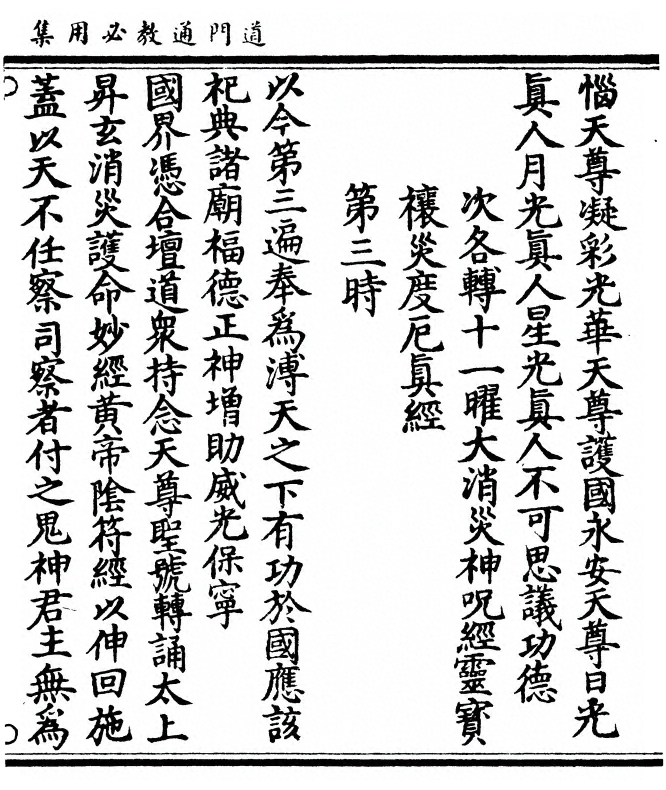 道門通教必用集
惱天尊凝彩光華天尊護國永安天尊日光
眞人月光眞人星光眞人不可思議功德
次各轉十一曜大消災神呪經靈寳
禳災度厄眞經
第三時
以今第三遍奉爲溥天之下有功於國應該
祀典諸廟福德正神增助威光保寧
國界憑合壇道衆持念天尊聖號轉誦太上
昇玄消災護命妙經黄帝陰符經以伸回施
蓋以天不任察司察者付之鬼神君主無爲